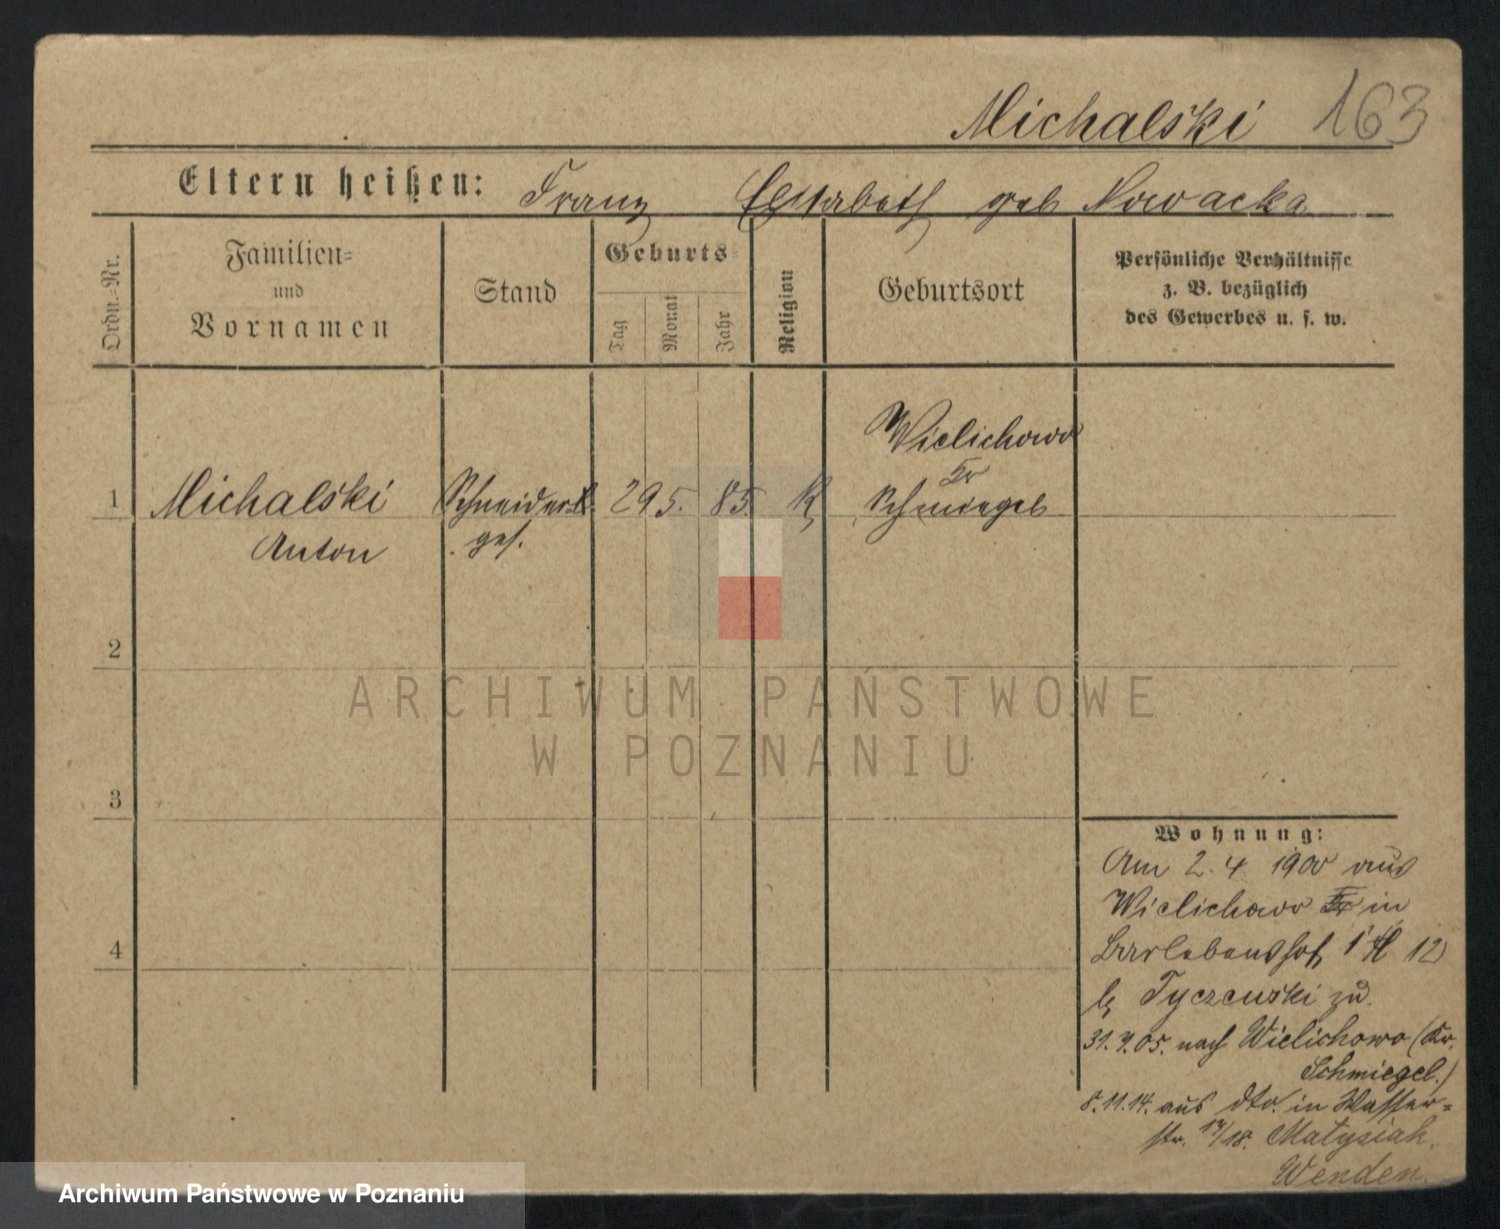 Michalski 163
Eltern heißen: Franz Elisabeth geb Nowacka
Ordn.-Nr.
Familien-
und
Vornamen
Stand
Geburts-
Tag
Monat
Jahr
Religion
Geburtsort
Persönliche Verhältnisse
z. B. bezüglich
des Gewerbes u. s. w.
1 Michalski Schneider 29 5. 85 K Wielichowo
Kr
Schmiegel
Anton ges.
2
3
4
ARCHIWUM PAŃSTWOWE
W POZNANIU
Wohnung:
Am 2. 4 1900 aus
Wielichowo in
12
Tyczewski zu
31.7.05. nach Wielichowo (Kr.
Schmiegel.)
8.11.14. aus dto. in Wasser-
str. 17/18. Matysiak.
Wenden.
Archiwum Państwowe w Poznaniu